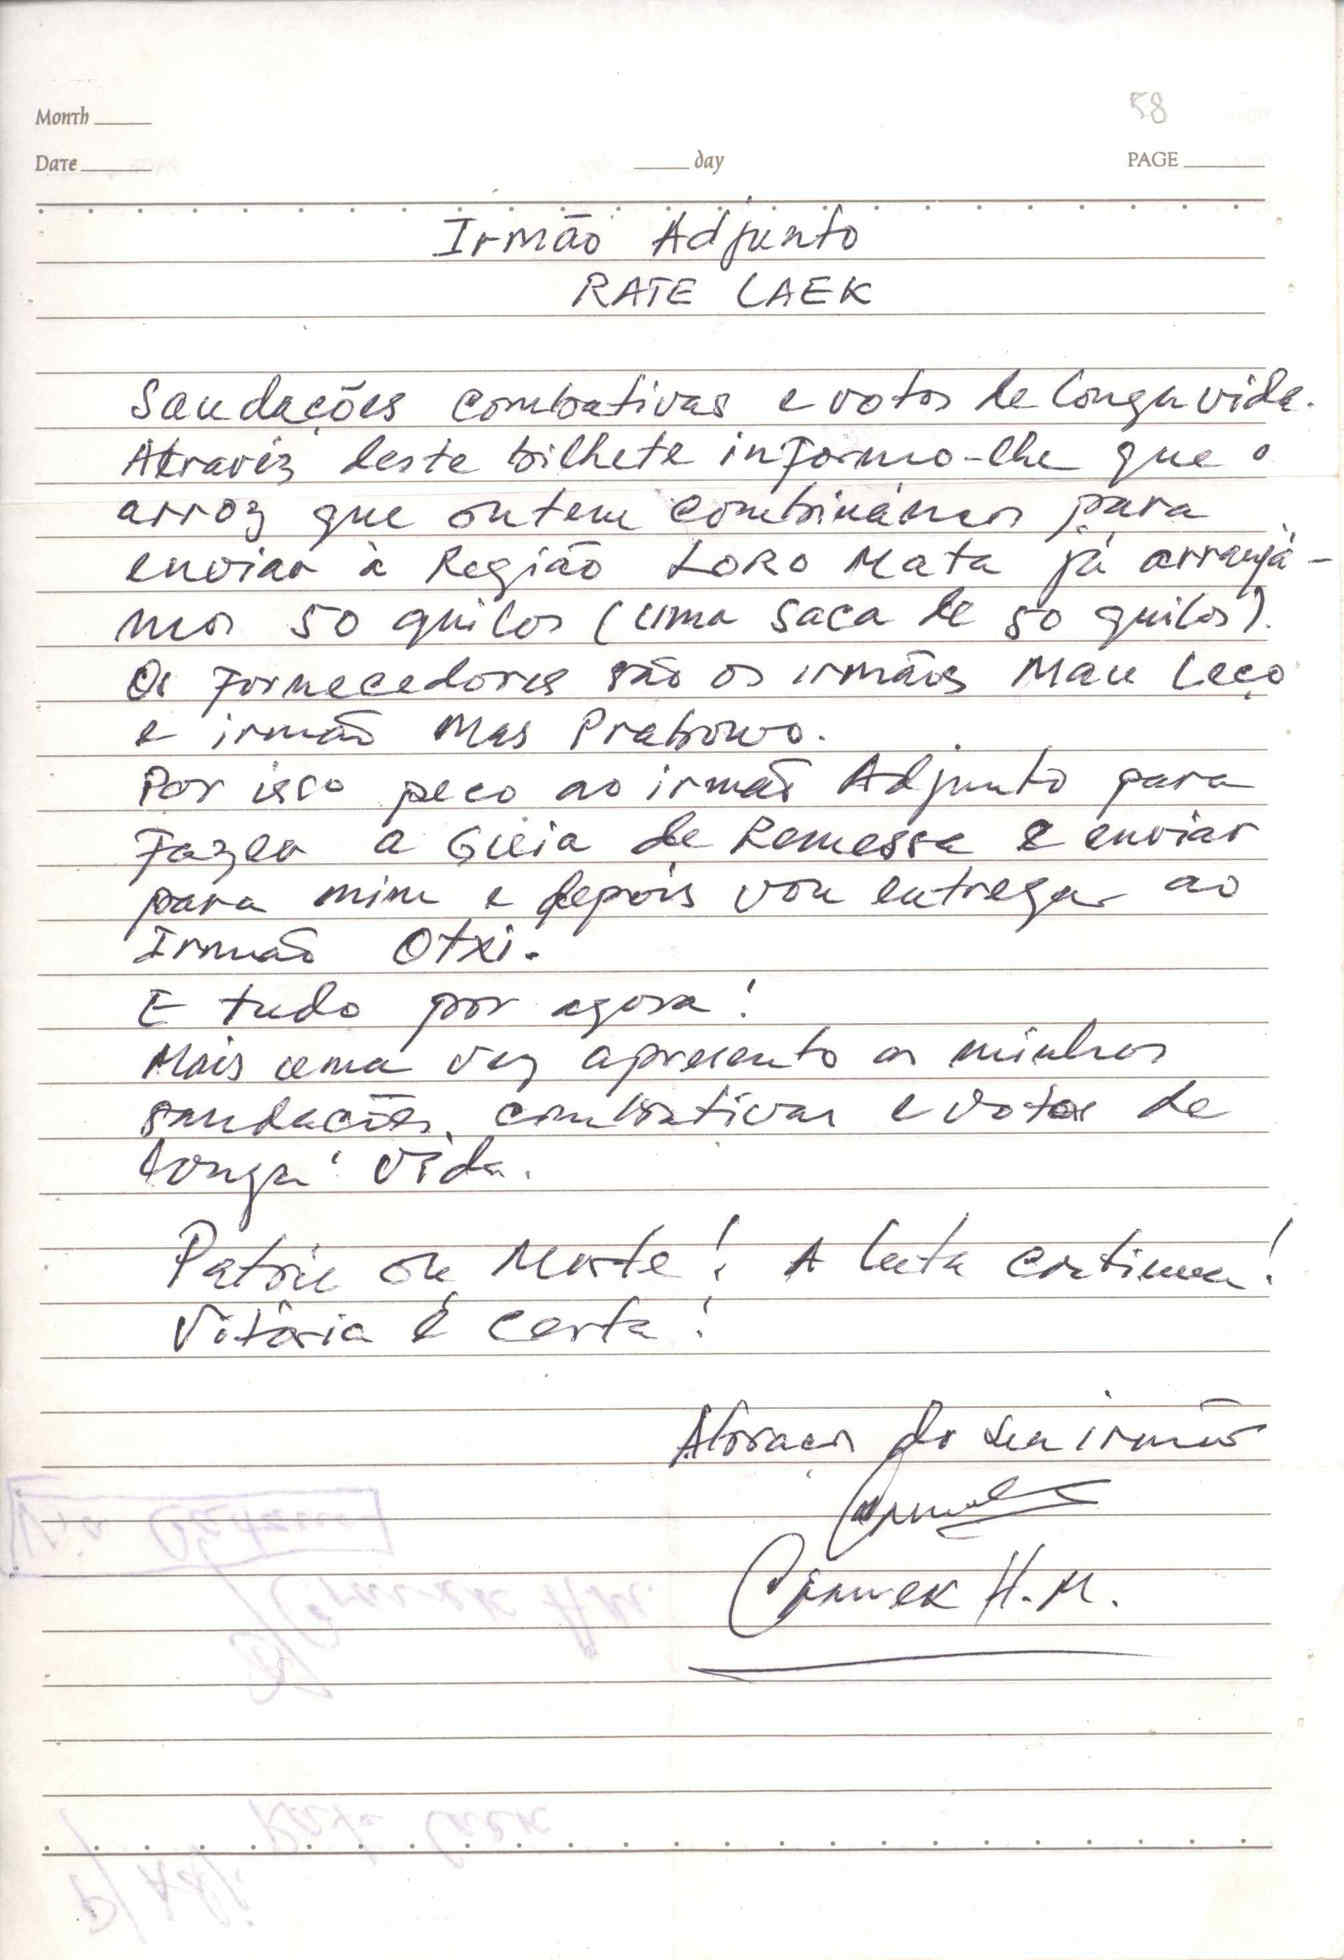 58
Month
Date day PAGE
Irmão Adjunto
RATE LAEK
Saudações combativas e votos de longa vida.
Atravéz deste bilhete informo-lhe que o
arroz que ontem combinámos para
enviar à Região LORO Mata já arranjá-
mos 50 quilos (uma saca de 50 quilos).
Os fornecedores são os irmãos Mau Leço
e irmão Mas Prabowo.
Por isso peço ao irmão Adjunto para
fazer a Guia de Remessa e enviar
para mim e depois vou entregar ao
Irmão Otxi.
E tudo por agora!
Mais uma vez apresento as minhas
saudações combativas e votos de
longa vida.
Patria ou Morte! A luta continua!
Vitória é certa!
Abraços do seu irmão
H.M.
Via
H.M.
P/ Adj. Rate Laek